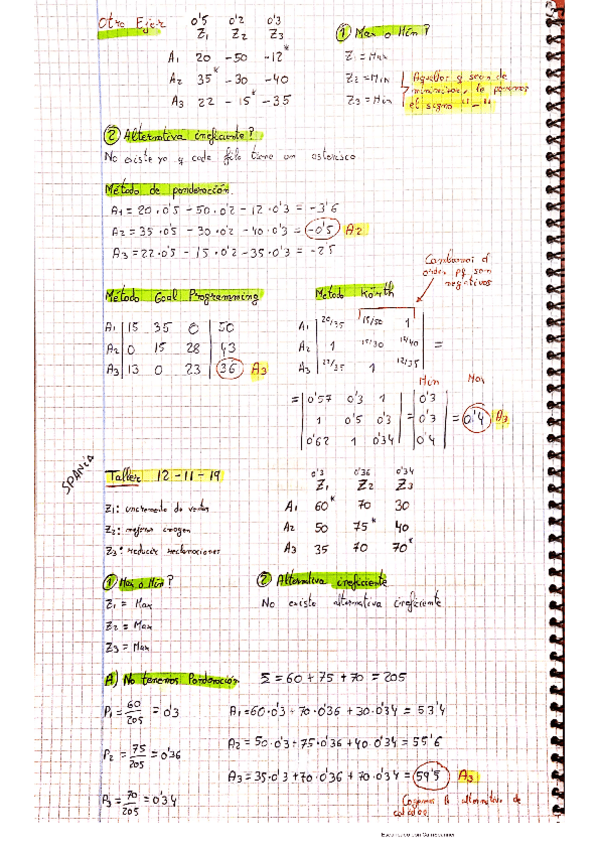 Otro Ejer 0'5 0'2 0'3
Z1 Z2 Z3
A1 20 -50 -12*
A2 35* -30 -40
A3 22 -15* -35
① Max o Min?
Z1 = Max
Z2 = Min
Z3 = Min
Aquellos q sean de
minimizar, le ponemos
el signo "-"
② Alternativa ineficiente?
No existe ya q cada fila tiene un asterisco
Método de ponderación
A1 = 20·0'5 - 50·0'2 - 12·0'3 = -3'6
A2 = 35·0'5 - 30·0'2 - 40·0'3 = -0'5 A2
A3 = 22·0'5 - 15·0'2 - 35·0'3 = -2'5
Método Goal Programming
A1 | 15 35 0 | 50
A2 | 0 15 28 | 43
A3 | 13 0 23 | 36 A3
Cambiamos el
orden pq son
negativos
Método Körth
A1 | 20/35 15/50 1 |
A2 | 1 15/30 12/40 | =
A3 | 22/35 1 12/35 |
Min Max
= | 0'57 0'3 1 | | 0'3 |
| 1 0'5 0'3 | = | 0'3 | = 0'4 A3
| 0'62 1 0'34 | | 0'4 |
SPANIA
Taller 12-11-19
Z1: incremento de ventas
Z2: mejorar imagen
Z3: reducir reclamaciones
0'3 0'36 0'34
Z1 Z2 Z3
A1 60* 70 30
A2 50 75* 40
A3 35 70 70*
① Max o Min?
Z1 = Max
Z2 = Max
Z3 = Max
② Alternativa ineficiente
No existe alternativa ineficiente
A) No tenemos Ponderación Σ = 60 + 75 + 70 = 205
P1 = 60/205 = 0'3 A1 = 60·0'3 + 70·0'36 + 30·0'34 = 53'4
P2 = 75/205 = 0'36 A2 = 50·0'3 + 75·0'36 + 40·0'34 = 55'6
P3 = 70/205 = 0'34 A3 = 35·0'3 + 70·0'36 + 70·0'34 = 59'5 A3
Cogemos la alternativa de
Escaneado con CamScanner